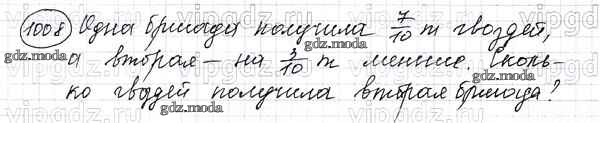 1008 Одна бригада получила 7/10 т гвоздей,
а вторая – на 3/10 т меньше. Сколь-
ко гвоздей получила вторая бригада?
gdz.moda
gdz.moda
gdz.moda
gdz.moda
gdz.moda